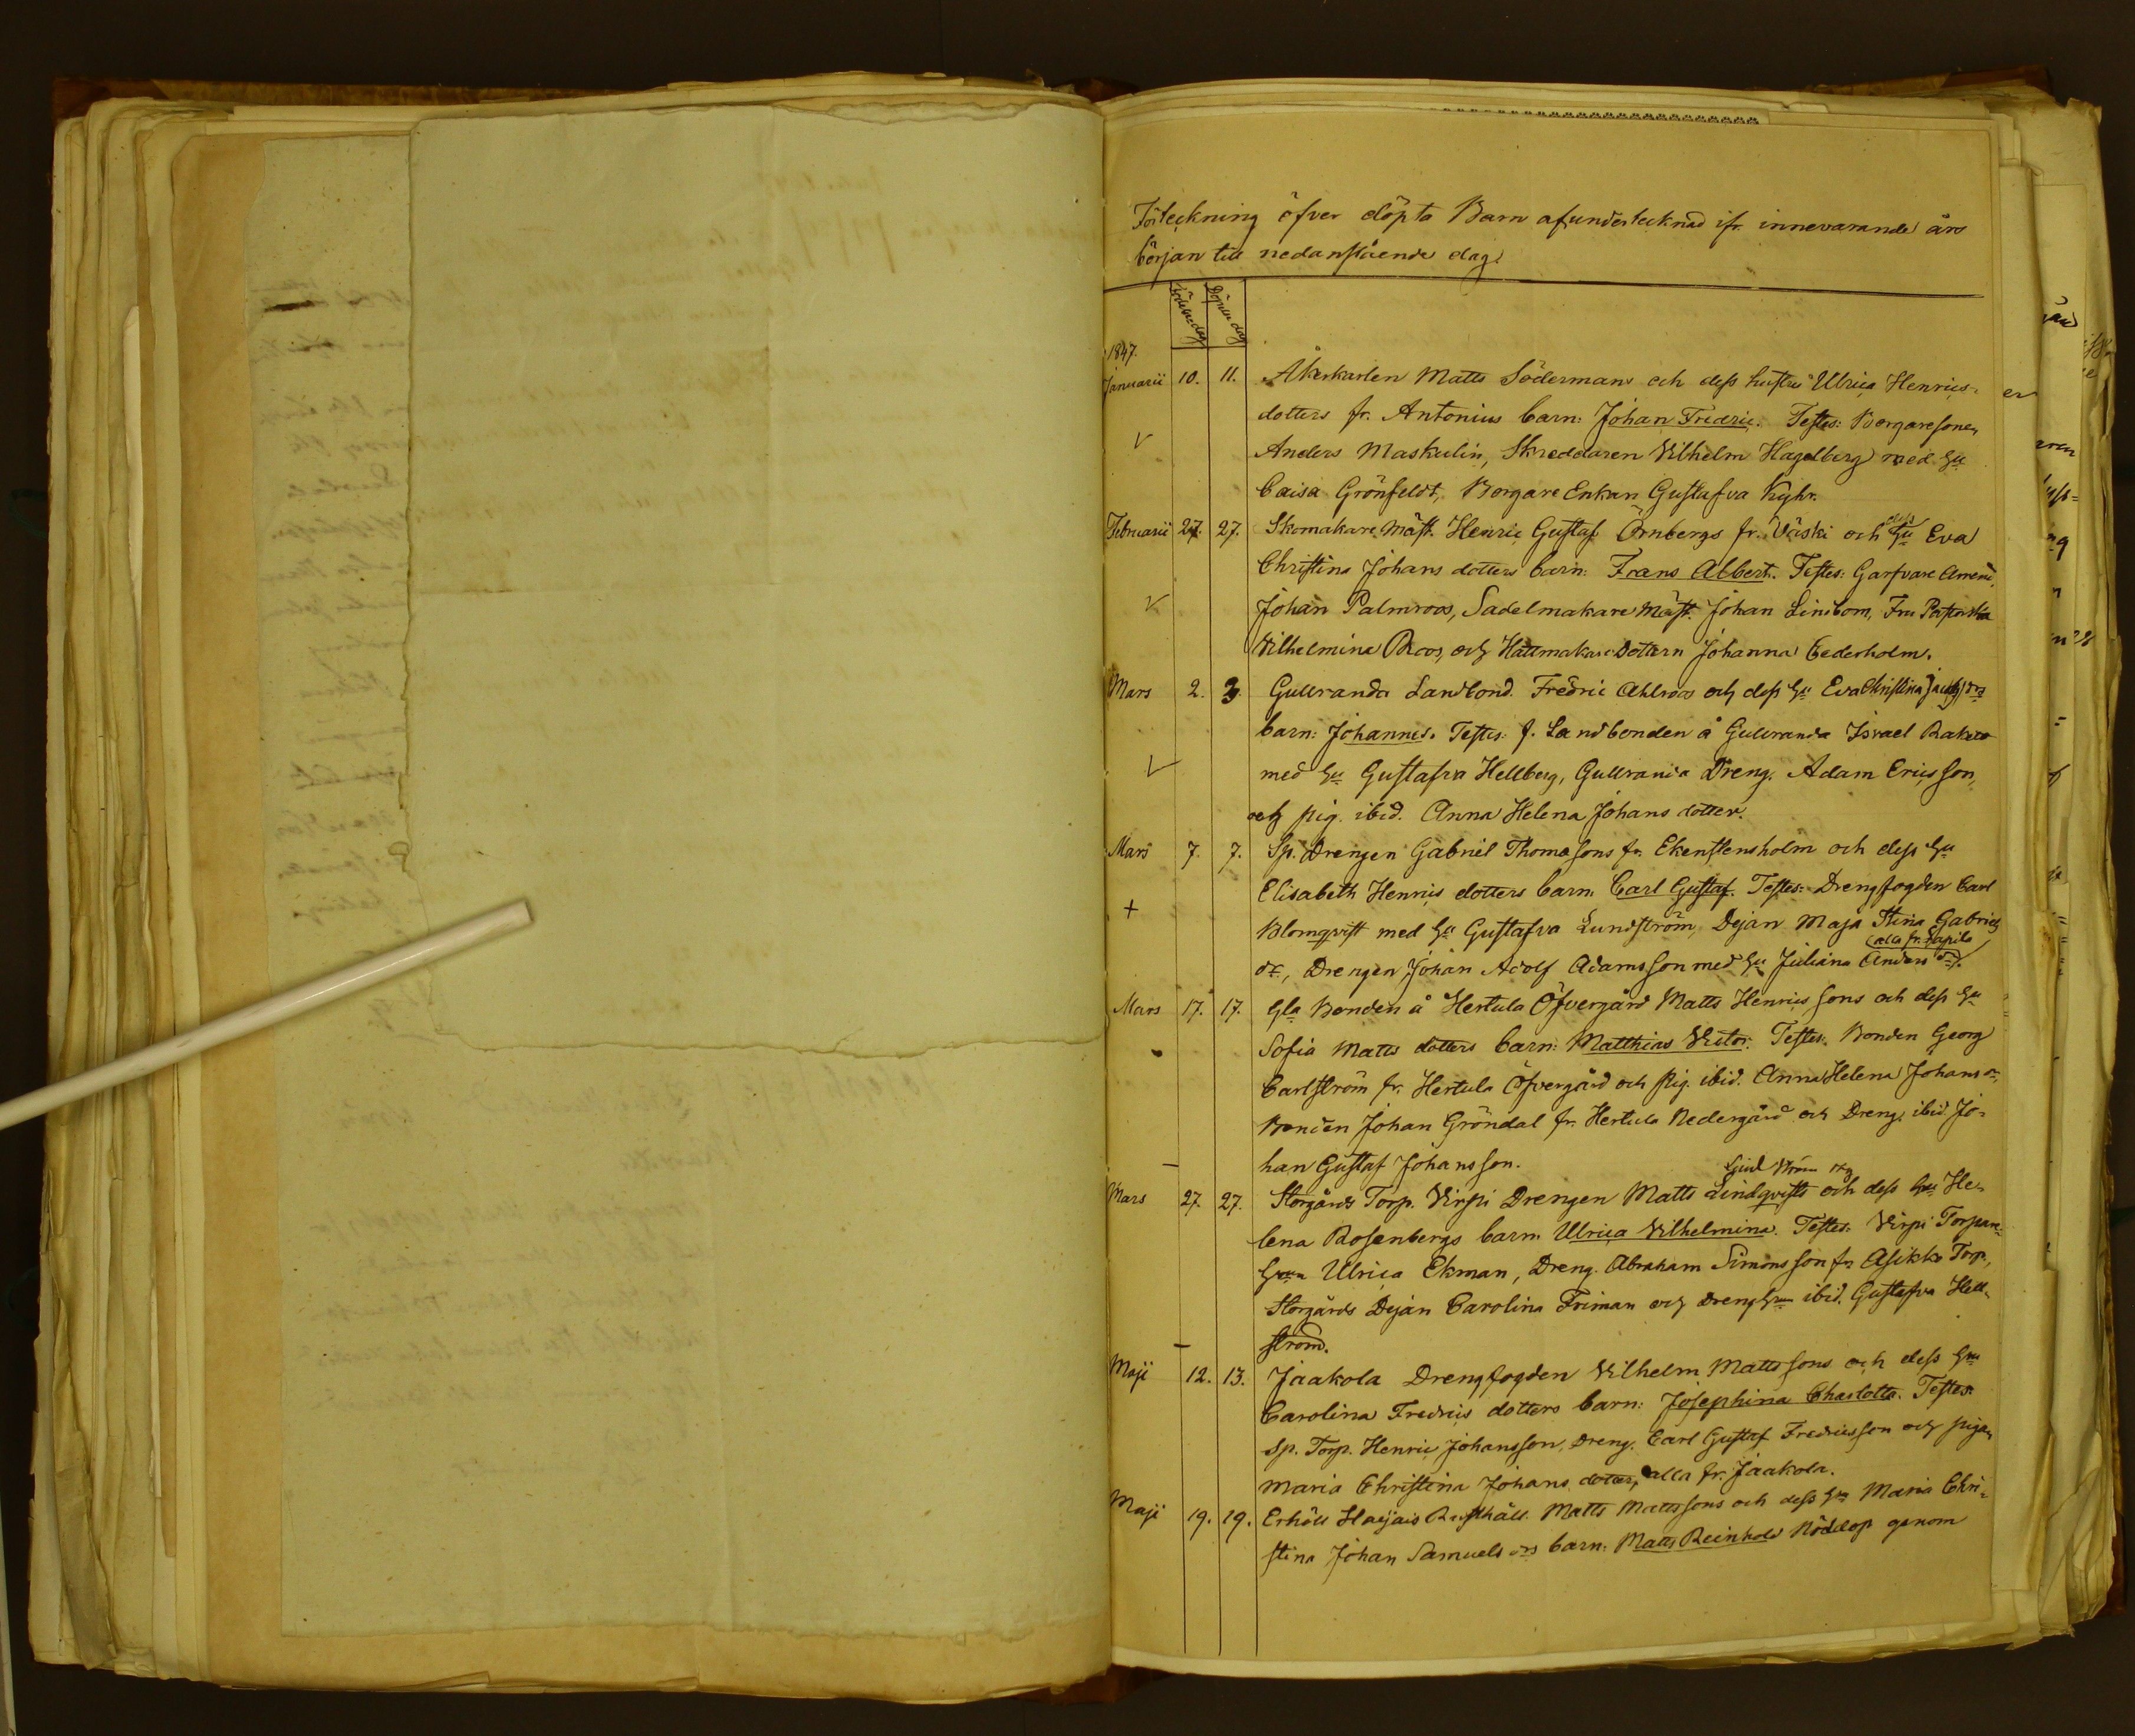 Förteckning öfver döpta Barn af undertecknad ifr. innevarande års
början till nedanstående dag.
Födelsedag Döpelsedag
1847.
Januarii 10. 11. Åkerkarlen Matts Södermans och dess hustru Ulrica Henrics-
dotters fr. Antonius barn: Johan Fredric. Testes: Borgaresonen
Anders Maskulin, Skreddaren Vilhelm Hagelberg med Hu
Caisa Grönfeldt, Borgare Enkan Gustafva
Februarii 27. 27. Skomakare Mäst. Henric Gustaf Örnbergs fr. Väski och dess Hu Eva
Christina Johans dotters barn: Frans Albert. Testes: Garfvare
Johan Palmroos, Sadelmakare Mäst. Johan Lindbom, Fru
Vilhelmina Roos, och Hattmakare Dottern Johanna Cederholm.
Mars 2. 3. Gullranda Landbond. Fredric Ahlroos och dess Hu Eva Christina
barn: Johannes. Testes: f. Landbonden å Gullranda Israel
med Hu Gustafva Hellberg, Gullranda Dreng. Adam Ericsson,
och pig. ibid. Anna Helena Johans dotter.
Mars 7. 7. Sp. Drengen Gabriel Thomasons fr. Ekenstensholm och dess Hu
Elisabeth Henrics dotters barn: Carl Gustaf. Testes: Drengfogden Carl
Blomqvist med Hu Gustafva Lundström, Dejan Maja Stina Gabriels
dr., Drengen Johan Adolf Adamsson med Hu Juliana Anders dr. (alla fr.
Mars 17. 17. Gla Bonden å Hertula Öfvergård Matts Henricssons och dess Hu
Sofia Matts dotters barn: Matthias Victor. Testes: Bonden Georg
Carlström fr. Hertula Öfvergård och Pig. ibid. Anna Helena Johans dr,
Bonden Johan Gröndal fr. Hertula Nedergård och Dreng. ibid Jo-
han Gustaf Johansson.
Mars 27. 27. Storgårds Torp. Virpi Drengen Matts Lindqvists och dess Hu He-
lena Rosenbergs barn: Ulrica Vilhelmina. Testes: Virpi Torpare
Ulrica Ekman, Dreng. Abraham Simonsson fr Asikko Torp.,
Storgårds Dejan Carolina Friman och Dreng ibid. Gustafva Hell-
ström.
Maji 12. 13. Jaakola Drengfogden Vilhelm Mattssons och dess Hu
Carolina Fredrics dotters barn: Josephina Charlotta. Testes:
Sp. Torp. Henric Johansson, Dreng. Carl Gustaf Fredricsson och pigan
Maria Christina Johans dotter, alla fr. Jaakola.
Maji 19. 19. Erhöll Haijais Rusthåll. Matts Mattssons och dess Hu Maria Chri-
stina Johan Samuels drs barn: Matts Reinhold Nöddop genom